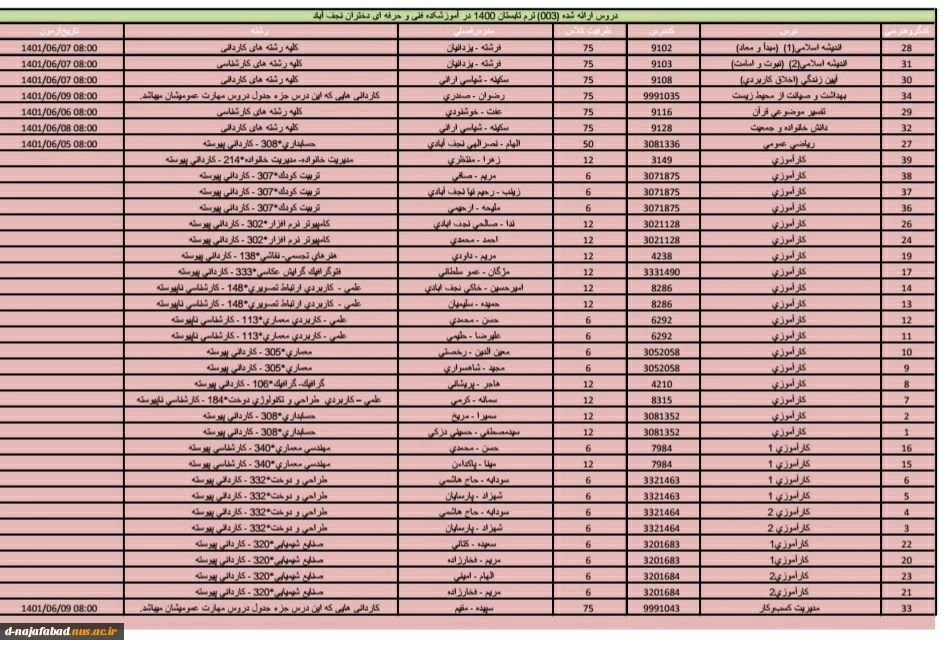 دروس ارائه شده (003) ترم تابستان 1400 در آموزشکده فنی و حرفه ای دختران نجف آباد
کدگروهدرسی درس کددرس ظرفیت کلاس مدرس‌اصلی رشته تاریخ‌آزمون
28 انديشه اسلامي(1) (مبدأ و معاد) 9102 75 فرشته - يزدانيان کليه رشته هاي کارداني 1401/06/07 08:00
31 انديشه اسلامي(2) (نبوت و امامت) 9103 75 فرشته - يزدانيان کليه رشته هاي کارشناسي 1401/06/07 08:00
30 آيين زندگي (اخلاق كاربردي) 9108 75 سكينه - شياسي اراني کليه رشته هاي کارداني 1401/06/07 08:00
34 بهداشت و صيانت از محيط زيست 9991035 75 رضوان - صدري كارداني هايي كه اين درس جزء جدول دروس مهارت عموميشان ميباشد. 1401/06/09 08:00
29 تفسير موضوعي قرآن 9116 75 عفت - خوشنودي کليه رشته هاي کارشناسي 1401/06/06 08:00
32 دانش خانواده و جمعيت 9128 75 سكينه - شياسي اراني کليه رشته هاي کارداني 1401/06/08 08:00
27 رياضي عمومي 3081336 50 الهام - نصرالهي نجف آبادي حسابداري*308 - كارداني پيوسته 1401/06/05 08:00
39 كارآموزي 3149 12 زهرا - منتظري مديريت خانواده- مديريت خانواده*214 - كارداني پيوسته
38 كارآموزي 3071875 6 مريم - صافي تربيت كودك*307 - كارداني پيوسته
37 كارآموزي 3071875 6 زينب - رحيم نيا نجف آبادي تربيت كودك*307 - كارداني پيوسته
36 كارآموزي 3071875 6 مليحه - ارحيمي تربيت كودك*307 - كارداني پيوسته
26 كارآموزي 3021128 12 ندا - صالحي نجف ابادي كامپيوتر نرم افزار*302 - كارداني پيوسته
24 كارآموزي 3021128 12 احمد - محمدي كامپيوتر نرم افزار*302 - كارداني پيوسته
19 كارآموزي 4238 12 مريم - داودي هنرهاي تجسمي- نقاشي*138 - كارداني پيوسته
17 كارآموزي 3331490 12 مژگان - عمو سلطاني فتوگرافيك گرايش عكاسي*333 - كارداني پيوسته
14 كارآموزي 8286 12 اميرحسين - خاكي نجف ابادي علمي - كاربردي ارتباط تصويري*148 - كارشناسي ناپيوسته
13 كارآموزي 8286 12 حميده - سليميان علمي - كاربردي ارتباط تصويري*148 - كارشناسي ناپيوسته
12 كارآموزي 6292 6 حسن - محمدي علمي - كاربردي معماري*113 - كارشناسي ناپيوسته
11 كارآموزي 6292 6 عليرضا - حليمي علمي - كاربردي معماري*113 - كارشناسي ناپيوسته
10 كارآموزي 3052058 6 معين الدين - رخصتي معماري*305 - كارداني پيوسته
9 كارآموزي 3052058 6 مجيد - شاهسواري معماري*305 - كارداني پيوسته
8 كارآموزي 4210 12 هاجر - پريشاني گرافيك- گرافيك*106 - كارداني پيوسته
7 كارآموزي 8315 12 سمانه - كرمي علمي – كاربردي طراحي و تكنولوژي دوخت*184 - كارشناسي ناپيوسته
2 كارآموزي 3081352 12 سميرا - مريخ حسابداري*308 - كارداني پيوسته
1 كارآموزي 3081352 12 سيدمصطفي - حسيني دزكي حسابداري*308 - كارداني پيوسته
16 كارآموزي 1 7984 6 حسن - محمدي مهندسي معماري*340 - كارشناسي پيوسته
15 كارآموزي 1 7984 12 مينا - پاكدامن مهندسي معماري*340 - كارشناسي پيوسته
6 كارآموزي 1 3321463 6 سودابه - حاج هاشمي طراحي و دوخت*332 - كارداني پيوسته
5 كارآموزي 1 3321463 6 شهزاد - پارسايان طراحي و دوخت*332 - كارداني پيوسته
4 كارآموزي 2 3321464 6 سودابه - حاج هاشمي طراحي و دوخت*332 - كارداني پيوسته
3 كارآموزي 2 3321464 6 شهزاد - پارسايان طراحي و دوخت*332 - كارداني پيوسته
22 كارآموزي1 3201683 6 سعيده - كتاني صنايع شيميايي*320 - كارداني پيوسته
20 كارآموزي1 3201683 6 مريم - فخارزاده صنايع شيميايي*320 - كارداني پيوسته
23 كارآموزي2 3201684 6 الهام - اميني صنايع شيميايي*320 - كارداني پيوسته
21 كارآموزي2 3201684 6 مريم - فخارزاده صنايع شيميايي*320 - كارداني پيوسته
33 مديريت كسب‌وكار 9991043 75 سپيده - مقيم كارداني هايي كه اين درس جزء جدول دروس مهارت عموميشان ميباشد. 1401/06/09 08:00
d-najafabad.nus.ac.ir